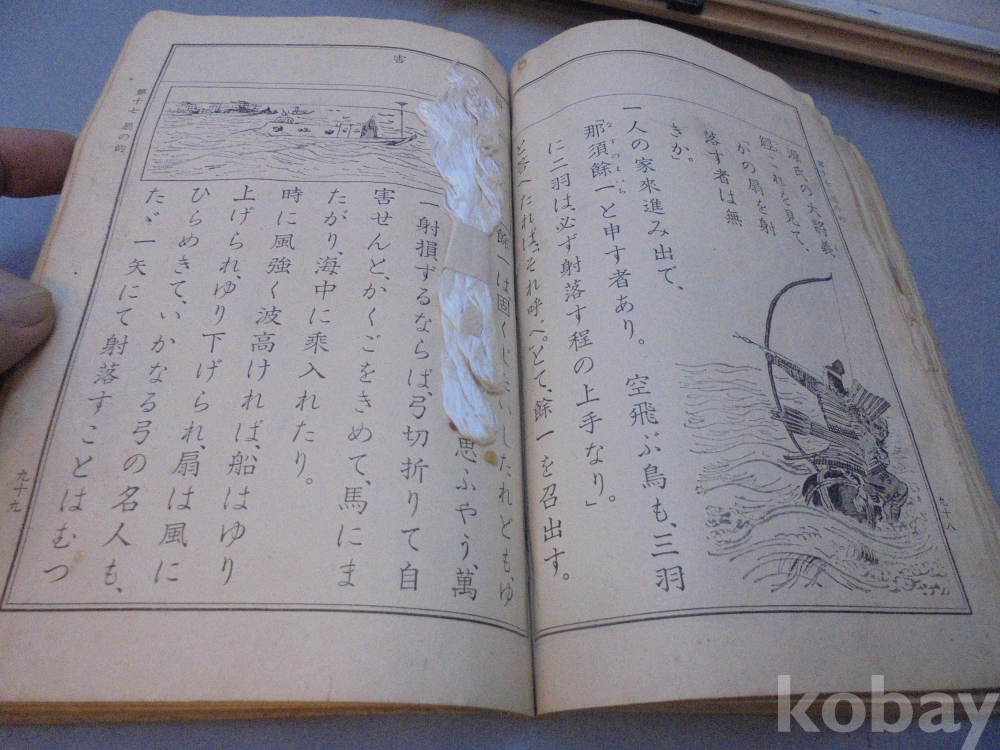 源氏の大將義
經これを見て、
かの扇を射
落す者は無
きか。」
一人の家來進み出で、
「那須餘一と申す者あり。空飛ぶ鳥も、三羽
なすのよいち
に二羽は、必ず射落す程の上手なり。」
と答へたれば、「それ呼べ。」とて、餘一を召出す。
九十八
害
第十七 扇の的
餘一は固くじたいしたれども、ゆ
思ふやう、萬
一射損ずるならば、弓切折りて自
害せんと、かくごをきめて、馬にま
たがり、海中に乘入れたり。
時に風強く波高ければ、船はゆり
上げられ、ゆり下げられ、扇は風に
ひらめきて、いかなる弓の名人も、
たゞ一矢にて射落すことはむつ
九十九
kobay